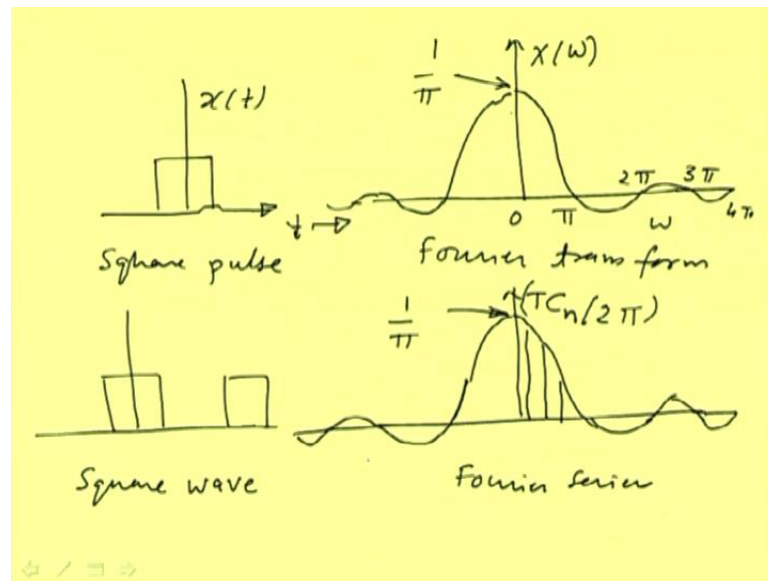 x(t)
t →
Square pulse
1
π
X(ω)
0 π 2π 3π 4π
ω
Fourier transform
Square wave
1
π
(TCn/2π)
Fourier series